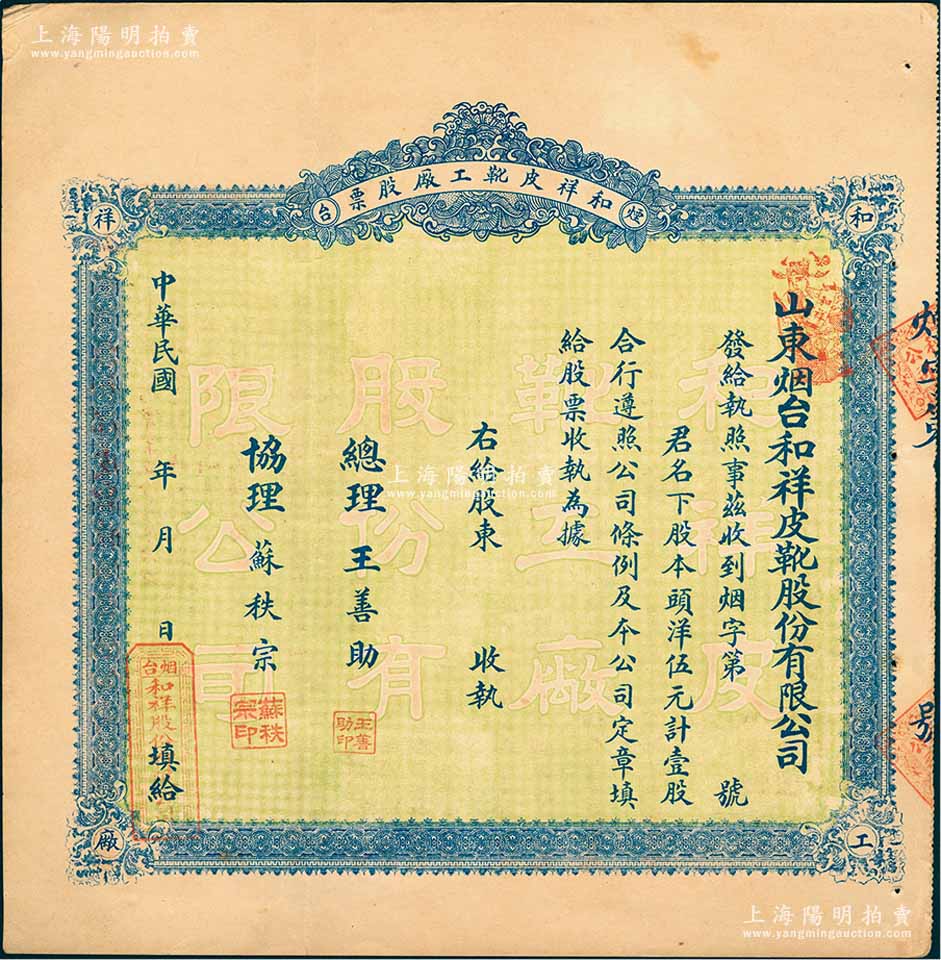 上海陽明拍賣
www.yangmingauction.com
煙
和祥皮靴工廠股票
台
和
祥
工
廠
山東烟台和祥皮靴股份有限公司
發給執照事茲收到烟字第　號
君名下股本頭洋伍元計壹股
合行遵照公司條例及本公司定章填
給股票收執為據
右給股東　收執
總理　王善助
王善助印
協理　蘇秩宗
蘇秩宗印
中華民國　年　月　日
填給
烟台
和祥股份
和祥皮
靴工廠
股份有
限公司
號
上海陽明拍賣
www.yangmingauction.com
上海陽明拍賣
www.yangmingauction.com